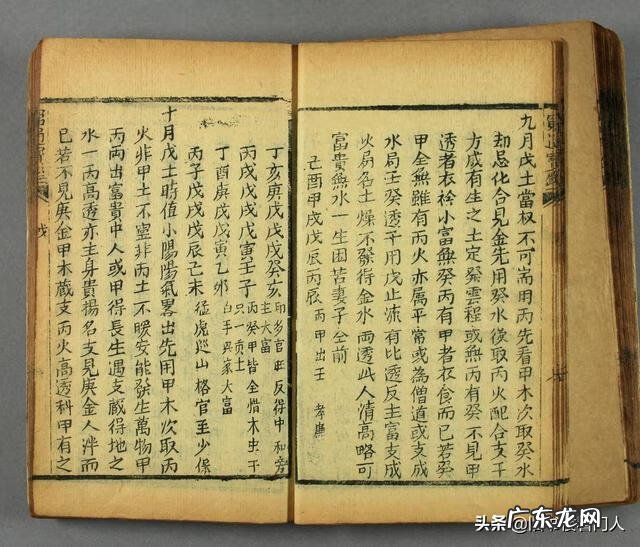 九月戊土當权不可耑用丙先看甲木次取癸水
却忌化合見金先用癸水後取丙火配合支干
方咸有生之土定癸雲程或無丙有癸不見甲
透者衣衿小富無癸丙有甲者衣食而已若癸
甲全無雖有丙火亦属平常或為僧道或支成
水局壬癸透干用戊止流有比透反主富支成
火局名土燥不發得金水兩透此人清高略可
富貴無水一生困苦妻子仝前
己酉甲戌戊辰丙辰 丙甲出壬 孝廉
丁亥庚戌戊戌癸亥 印多官旺反得中和旁主大富
丙戌戊戌戊寅壬子 丙癸甲皆全惜木虫干只一贡士
丁酉庚戌戊寅乙卯 白手興家大富
丙子戊戌戊辰己未 猛虎巡山格官至少保
十月戊土時值小陽陽氣畧出先用甲木次取丙
火非甲土不靈非丙土不暖安能發生萬物甲
丙兩出富貴中人或甲得長生遇支藏得地之
水一丙高透亦主身貴揚名支見庚金人泮而
已若不見庚金甲木藏支丙火高透科甲有之
戌
头条
广东龙网